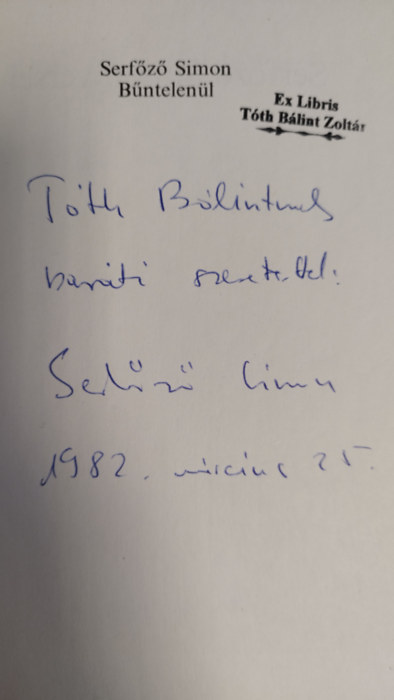 Serfőző Simon
Bűntelenül
Ex Libris
Tóth Bálint Zoltár
Tóth Bálintnak
baráti szeretettel:
Serfőző Simon
1982. március 25.